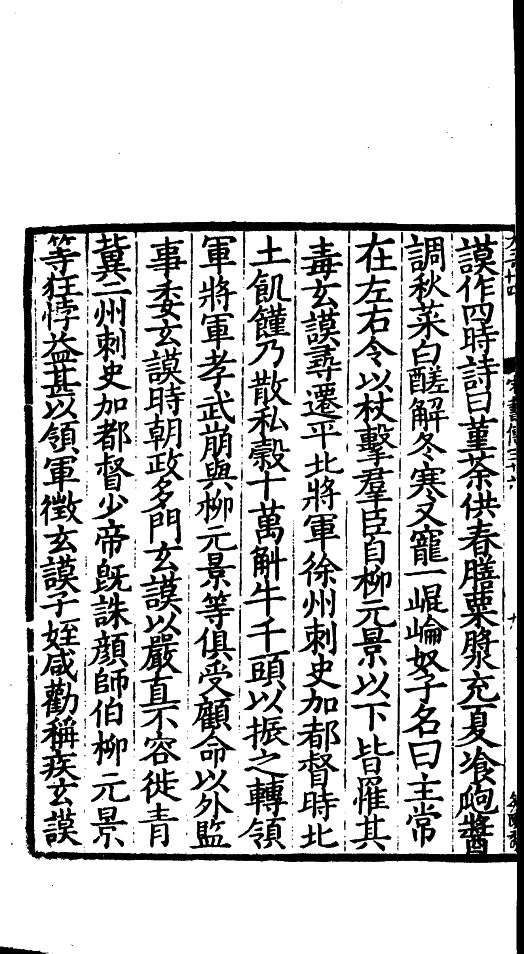 謨作四時詩曰菫荼供春膳粟漿充夏飡瓟醬
調秋菜白醝解冬寒又寵一崐崘奴子名曰主常
在左右令以杖擊羣臣自柳元景以下皆罹其
毒玄謨尋遷平北將軍徐州刺史加都督時北
土飢饉乃散私穀十萬斛牛千頭以振之轉領
軍將軍孝武崩與柳元景等俱受顧命以外監
事委玄謨時朝政多門玄謨以嚴直不容徙青
冀二州刺史加都督少帝旣誅顔師伯柳元景
等狂悖益甚以領軍徵玄謨子姪咸勸稱疾玄謨